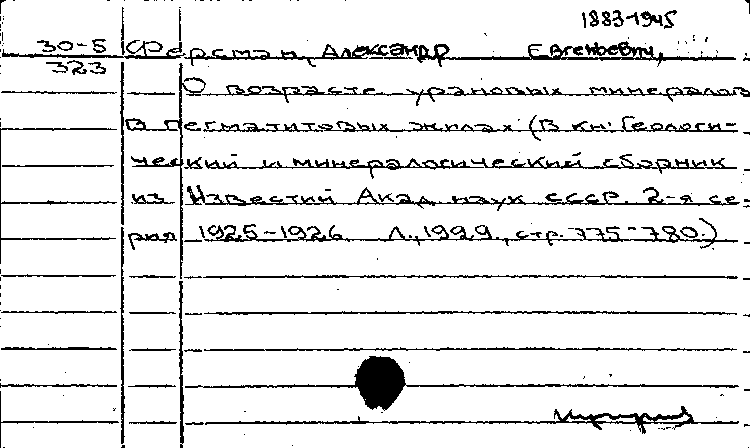 1883-1945
30-5 Ферсман, Александр Евгеньевич,
323
О возрасте урановых минералов
в пегматитовых жилах (В кн: Геологи-
ческий и минералогический сборник
из Известий Акад. наук СССР. 2-я се-
рия 1925-1926 Л., 1929, стр. 775-780.)